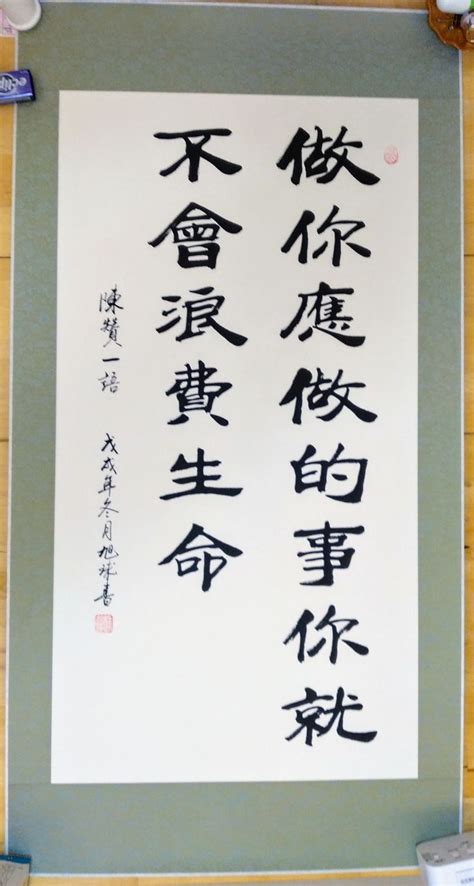 做你應做的事你就
不會浪費生命
陳贊一語 戊戌年冬月旭球書